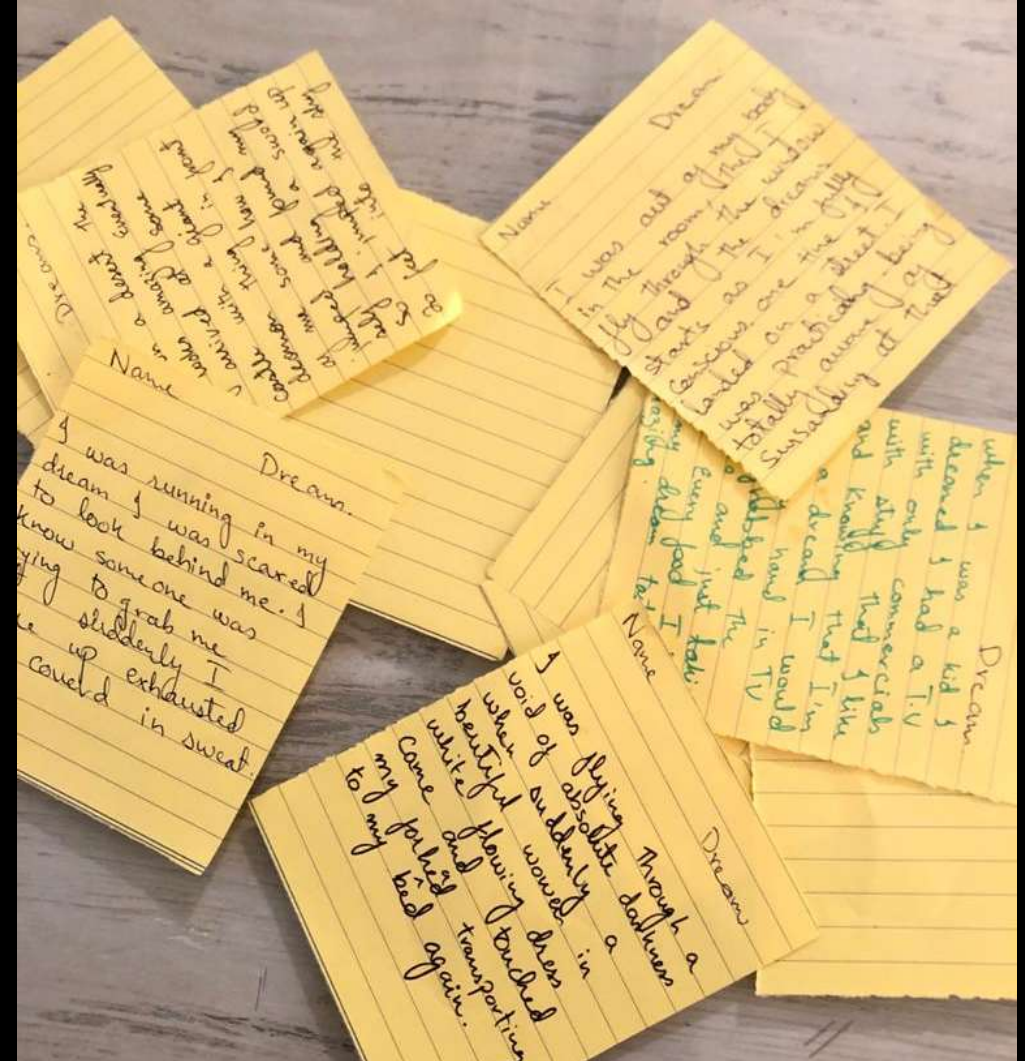 Dreams
in a desert the
I arrived at eventually
castle amazing some
demon with a giant
me thing in front
jumped some how I
and found my
holding a sword
So I jumped again up
feet into
Name
Dream
I was out of my body
in the room, then I
fly through the window
and the dream
starts as I'm fully
conscious one time I
landed on a street I
was practically being
totally aware of
at that
Name
Dream.
I was running in my
dream I was scared
to look behind me. I
know someone was
ying to grab me
suddenly I
up exhausted
couerd in sweat.
Dream
when I was a kid I
dreamed I had a T.V
with only commercials
with stuff that I like
and knowing that I'm
a dream I would
hand in TV
the
and just take
Every food I
my dream
Name
Dream
I was flying through a
void of absolute darkness
when suddenly a
beutiful women in
white flowing dress
came and touched
my forhead transporting
to my bed again.